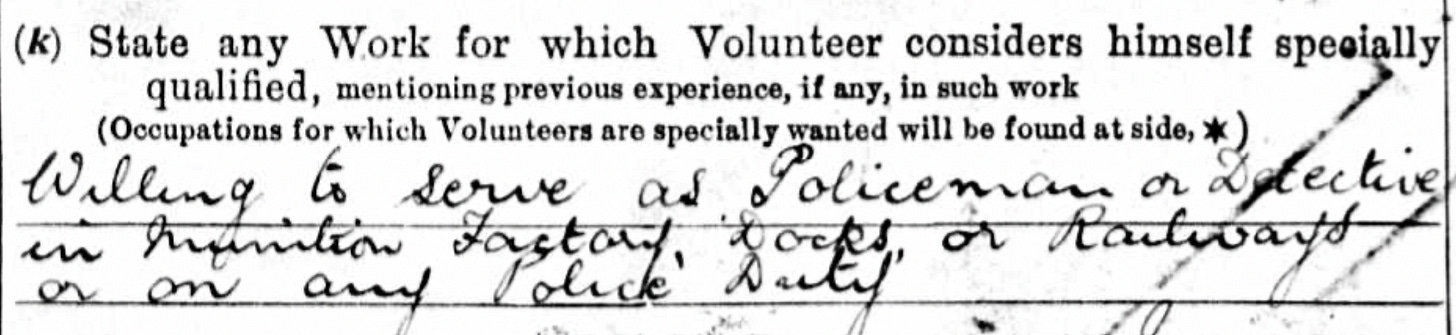 (k) State any Work for which Volunteer considers himself specially
qualified, mentioning previous experience, if any, in such work
(Occupations for which Volunteers are specially wanted will be found at side, *)
Willing to serve as Policeman or Detective
in Munition Factory, Docks, or Railways
or on any Police Duty